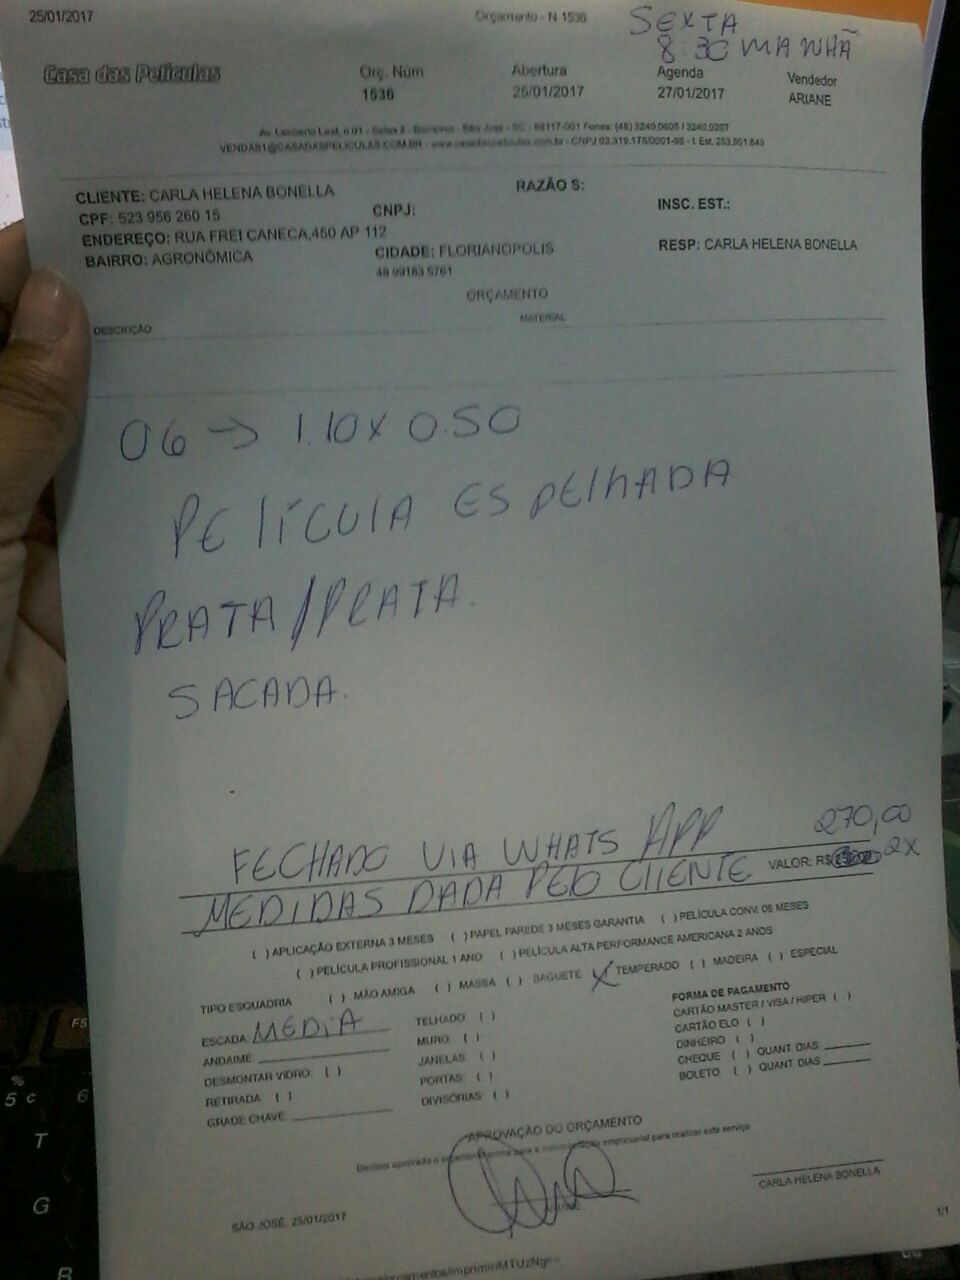 25/01/2017
Orçamento - N 1536
SEXTA
8:30 MANHÃ
Casa das Películas
Orç. Num
1536
Abertura
25/01/2017
Agenda
27/01/2017
Vendedor
ARIANE
VENDAS1@CASADASPELICULAS.COM.BR - www.casadaspeliculas.com.br - CNPJ 03.319.178/0001-98 - I. Est.
CLIENTE: CARLA HELENA BONELLA
RAZÃO S:
CPF: 523 956 260 15
CNPJ:
INSC. EST.:
ENDEREÇO: RUA FREI CANECA,450 AP 112
BAIRRO: AGRONÔMICA
CIDADE: FLORIANOPOLIS
RESP: CARLA HELENA BONELLA
48 99183 5761
ORÇAMENTO
DESCRIÇÃO
MATERIAL
06 → 1.10 x 0.50
PELÍCULA ESPELHADA
PRATA/PRATA.
SACADA.
FECHADO VIA WHATS APP
270,00
MEDIDAS DADA PELO CLIENTE
VALOR: R$
2X
( ) APLICAÇÃO EXTERNA 3 MESES ( ) PAPEL PAREDE 3 MESES GARANTIA ( ) PELÍCULA CONV. 06 MESES
( ) PELÍCULA PROFISSIONAL 1 ANO ( ) PELÍCULA ALTA PERFORMANCE AMERICANA 2 ANOS
TIPO ESQUADRIA ( ) MÃO AMIGA ( ) MASSA ( ) BAGUETE (X) TEMPERADO ( ) MADEIRA ( ) ESPECIAL
ESCADA: MEDIA
ANDAIME:
DESMONTAR VIDRO: ( )
RETIRADA: ( )
GRADE CHAVE:
TELHADO: ( )
MURO: ( )
JANELAS: ( )
PORTAS: ( )
DIVISÓRIAS: ( )
FORMA DE PAGAMENTO
CARTÃO MASTER / VISA / HIPER ( )
CARTÃO ELO ( )
DINHEIRO ( )
CHEQUE ( ) QUANT DIAS
BOLETO ( ) QUANT DIAS
APROVAÇÃO DO ORÇAMENTO
CARLA HELENA BONELLA
SÃO JOSÉ, 25/01/2017
1/1
F5
%
5 ¢
6
T
G
B